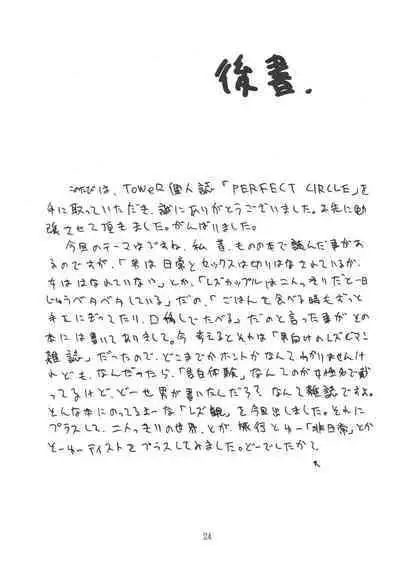 後書.
このたびは、TOWER個人誌「PERFECT CIRCLE」を
手に取っていただき、誠にありがとうございました。お先に勉
強させて頂きました。がんばりました。
今回のテーマはですね、私、昔、ものの本で読んだ事があ
るのですが、「男は日常とセックスは切りはなされているが、
女ははなれていない」とか、「レズカップルは二人っきりだと一日
じゅうベタベタしている」だの、「ごはんを食べる時もずっと
手をにぎってたり、口移しでたべる」だのと言った事がその
本には書いてありまして。今考えるとそれは「男向けのレズビアン
雑誌」だったので、どこまでがホントかなんてわかりませんけ
れども、なんだったら、「告白体験」なんてのが女姓名で載
ってるけど、どーせ男が書いたんだろ?なんて雑誌ですよ。
そんな本にのってるよーな「レズ観」を今回出しました。それに
プラスして、二人っきりの世界、とか、旅行とゆー「非日常」とか
そーゆーテイストをプラスしてみました。どーでしたか?
24